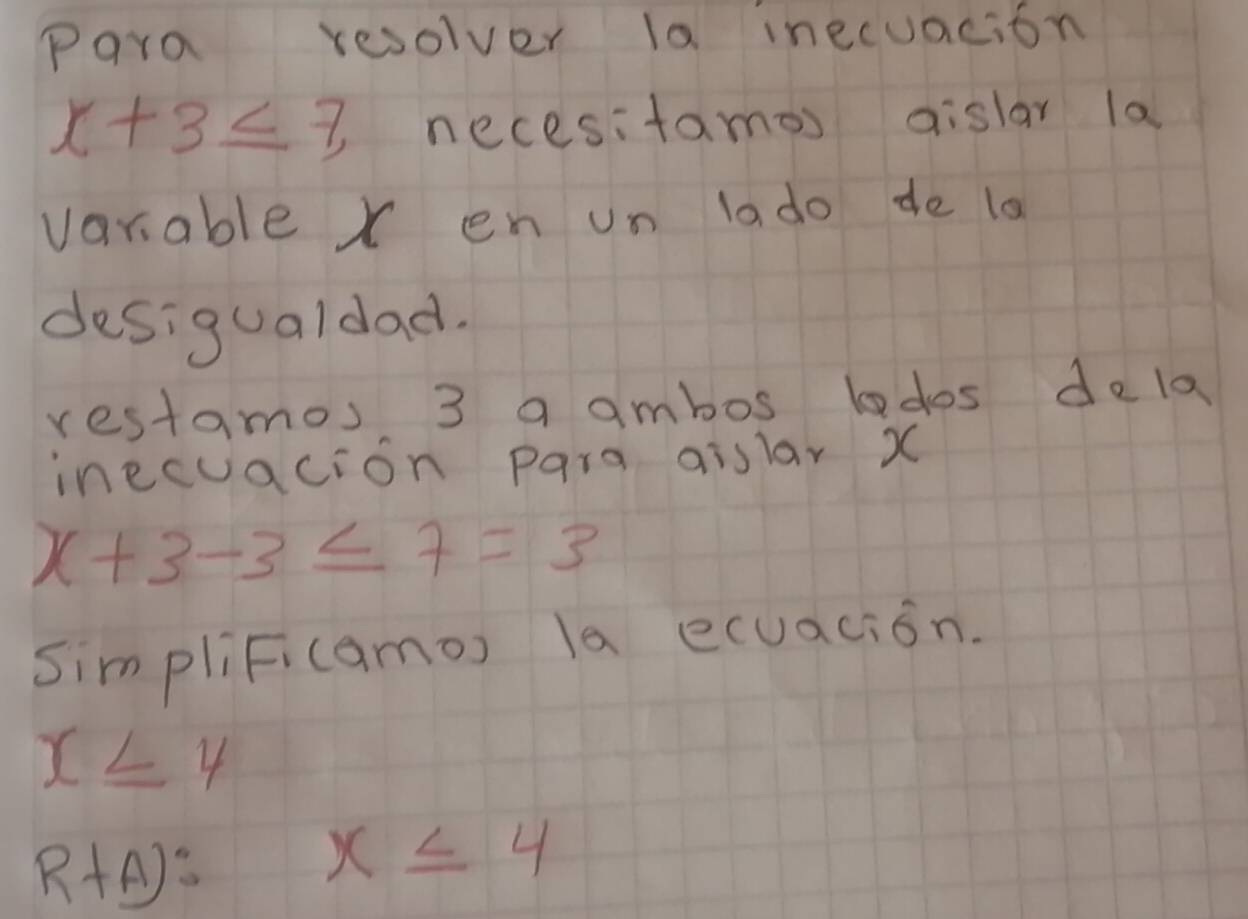 Para resolver la inecuación
x+3≤7, necesitamos aislar la
variable x en un lado de la
desigualdad.
restamos 3 a ambos lados de la
inecuación para aislar x
x+3-3 ≤ 7 = 3
simplificamos la ecuación.
x ≤ 4
R+A): x ≤ 4